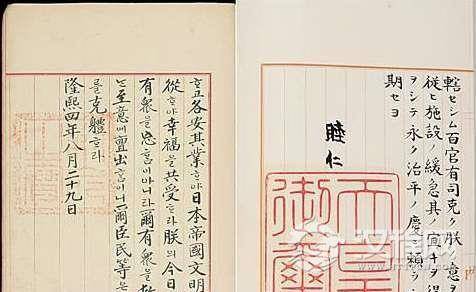 ᄒᆞ고各安其業ᄒᆞ야日本帝國文明
從ᄒᆞ야幸福을共受ᄒᆞ라朕의今日
有衆을忘홈이아니라爾有衆을救
ᄂᆞᆫ至意에亶出홈이니爾臣民等은
를克體ᄒᆞ라
隆熙四年八月二十九日
轄セシム百官有司克ク朕カ意ヲ
從ヒ施設ノ緩急其ノ宜キヲ得
ヲシテ永ク治平ノ慶ニ頼ラシ
期セヨ
睦仁
天皇
御璽